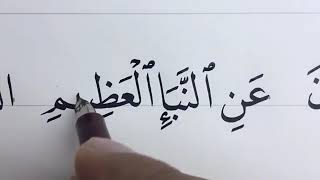 عَنِ ٱلنَّبَإِ ٱلْعَظِيمِ